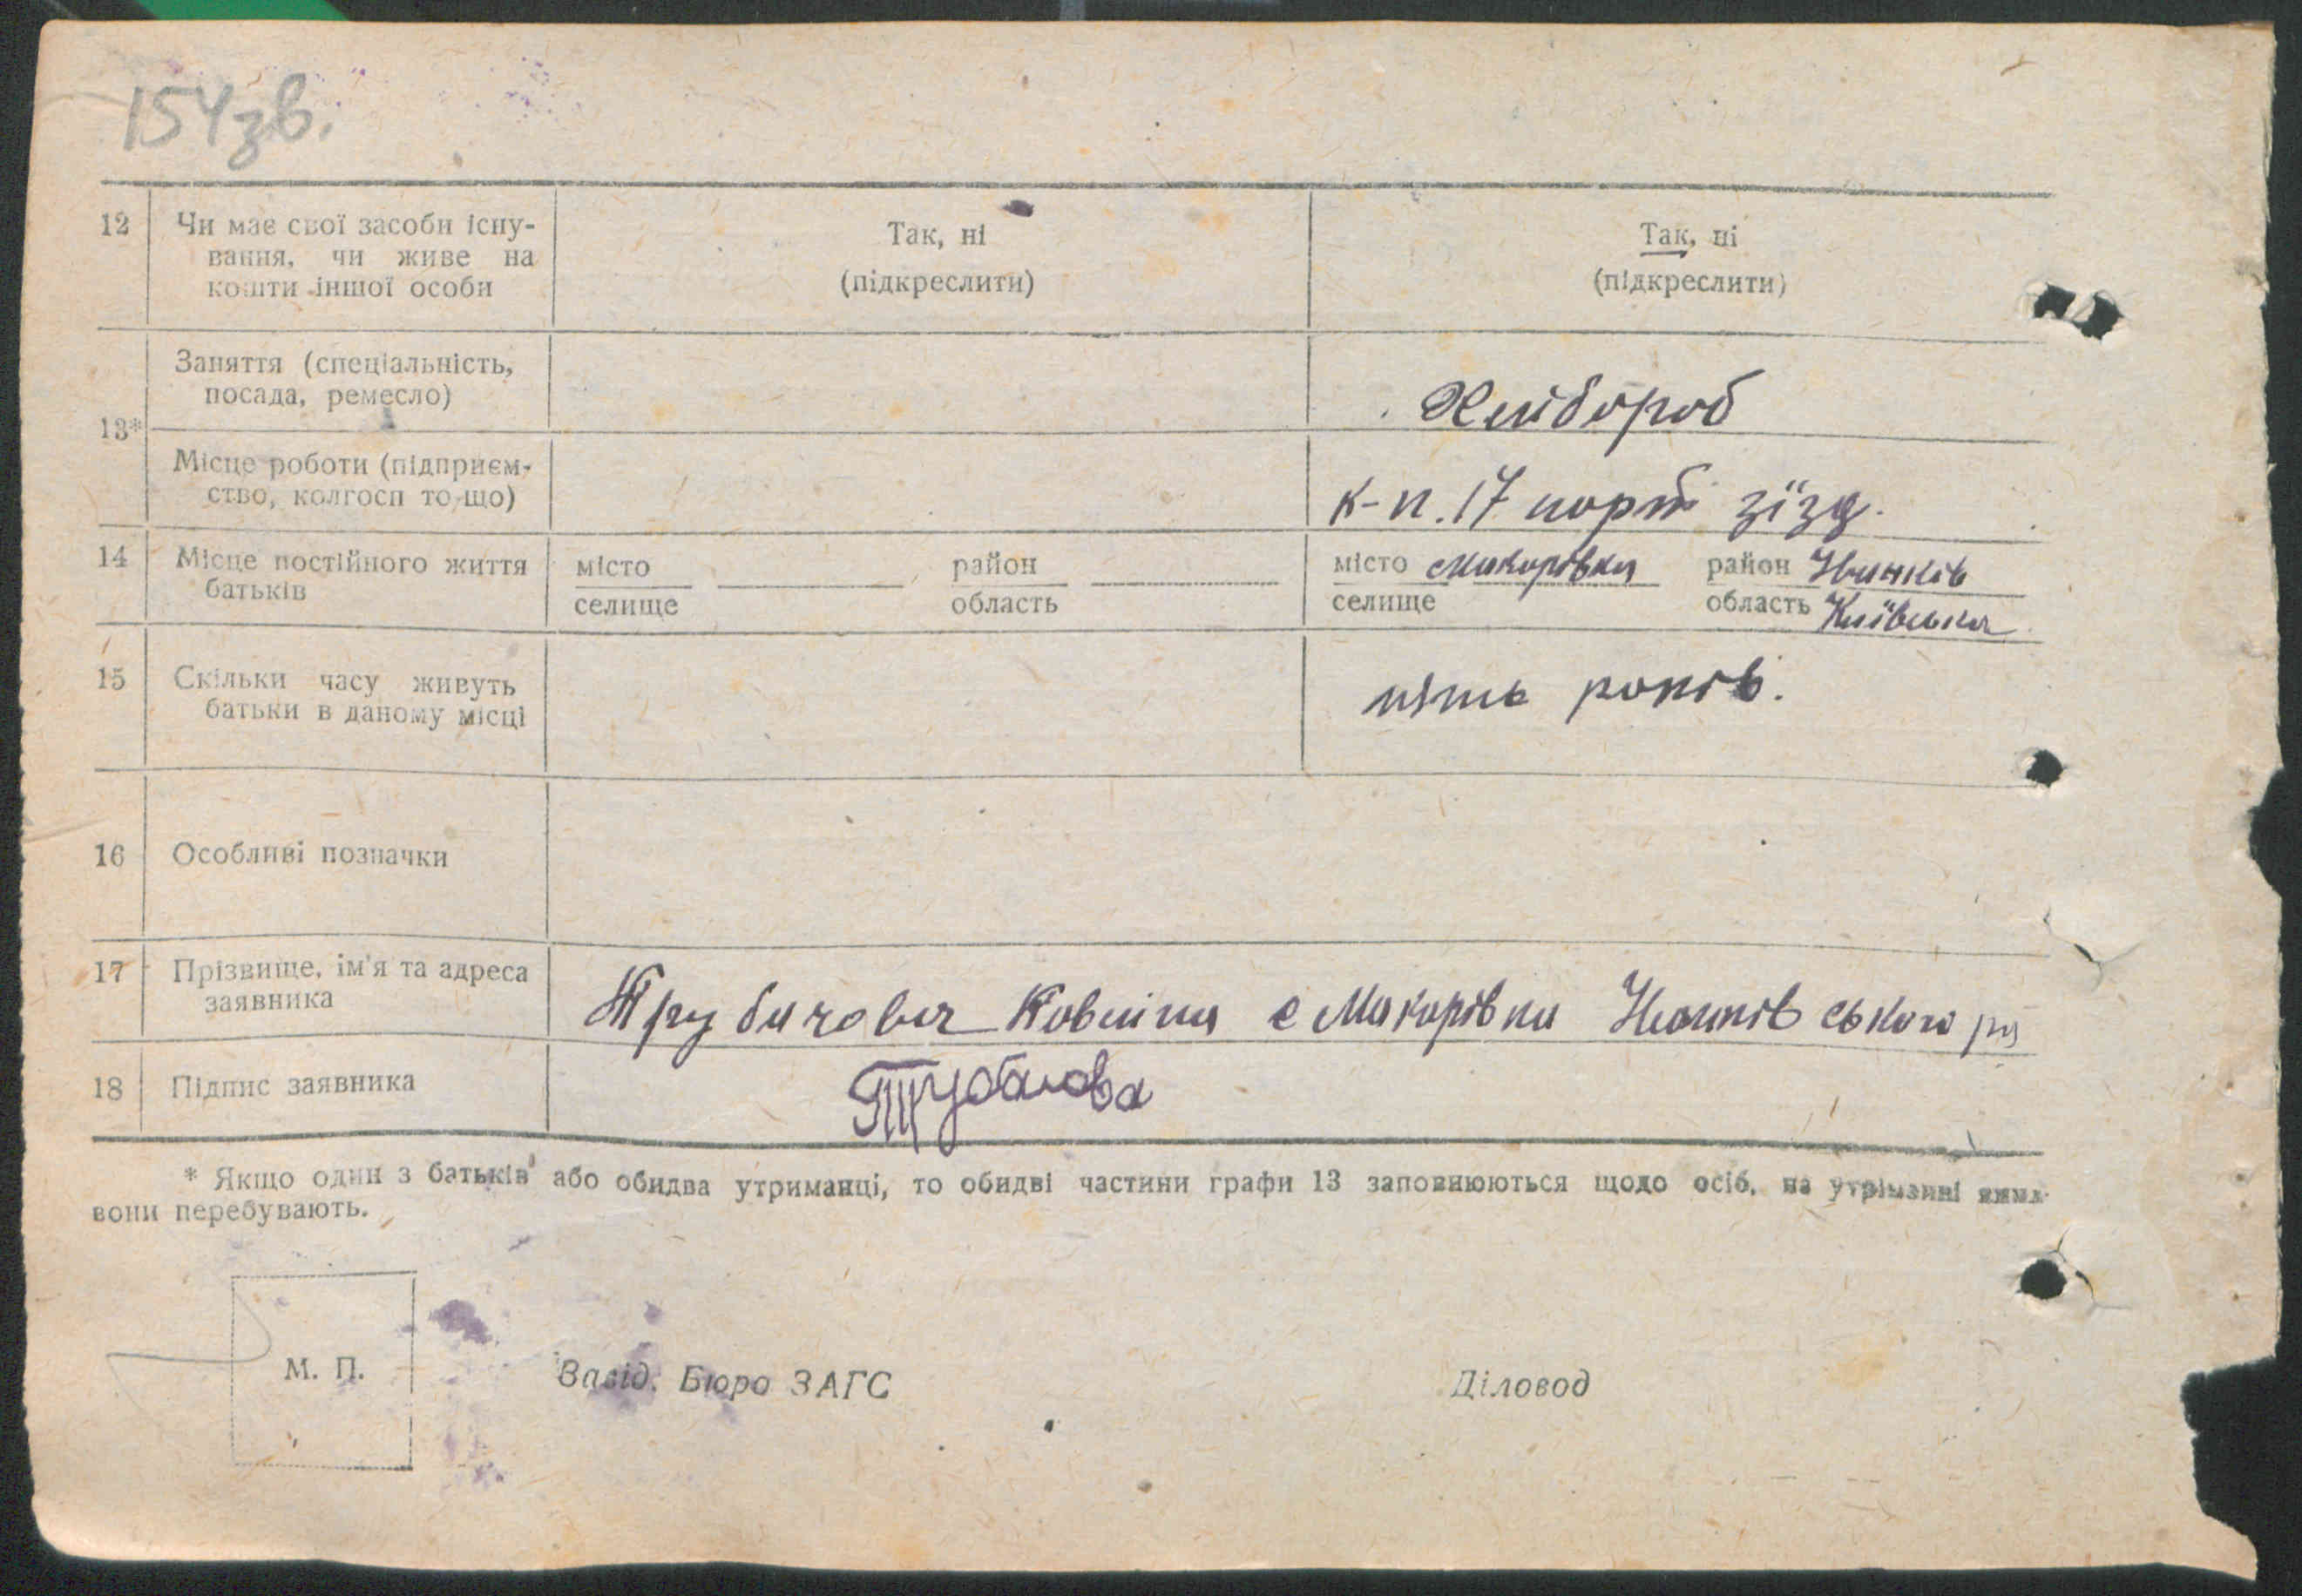 154зв.
12 Чи має свої засоби існу-
вання, чи живе на
кошти іншої особи
Так, ні
(підкреслити)
Так, ні
(підкреслити)
13*
Заняття (спеціальність,
посада, ремесло)
Хлібороб
Місце роботи (підприєм-
ство, колгосп то що)
к-п. 17 парт зїзд.
14 Місце постійного життя
батьків
місто
селище
район
область
місто Макорівка
селище
район
область Київська
15 Скільки часу живуть
батьки в даному місці
пять років.
16 Особливі позначки
17 Прізвище, ім'я та адреса
заявника
с Макорівка
18 Підпис заявника
* Якщо один з батьків або обидва утриманці, то обидві частини графи 13 заповнюються щодо осіб, на утріманні яких
вони перебувають.
М. П.
Завід. Бюро ЗАГС
Діловод